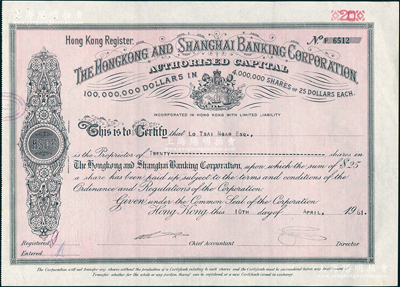 20
Hong Kong Register.
No F 6512
THE HONGKONG AND SHANGHAI BANKING CORPORATION
AUTHORISED CAPITAL
100,000,000 DOLLARS IN 4,000,000 SHARES OF 25 DOLLARS EACH.
INCORPORATED IN HONG KONG WITH LIMITED LIABILITY
This is to Certify that LO TSAI NGAN ESQ.,
is the Proprietor of TWENTY shares in
The Hongkong and Shanghai Banking Corporation, upon which the sum of $25
a share has been paid up subject to the terms and conditions of the
Ordinance and Regulations of the Corporation
Given under the Common Seal of the Corporation
Hong Kong, this 10TH day of APRIL, 1961.
Registered
Entered
Chief Accountant
Director
The Corporation will not Transfer any shares without the production of a Certificate relating to such shares and the Certificate must be surrendered before any
Transfer whether for the whole or any portion thereof can be registered or a new Certificate issued in exchange